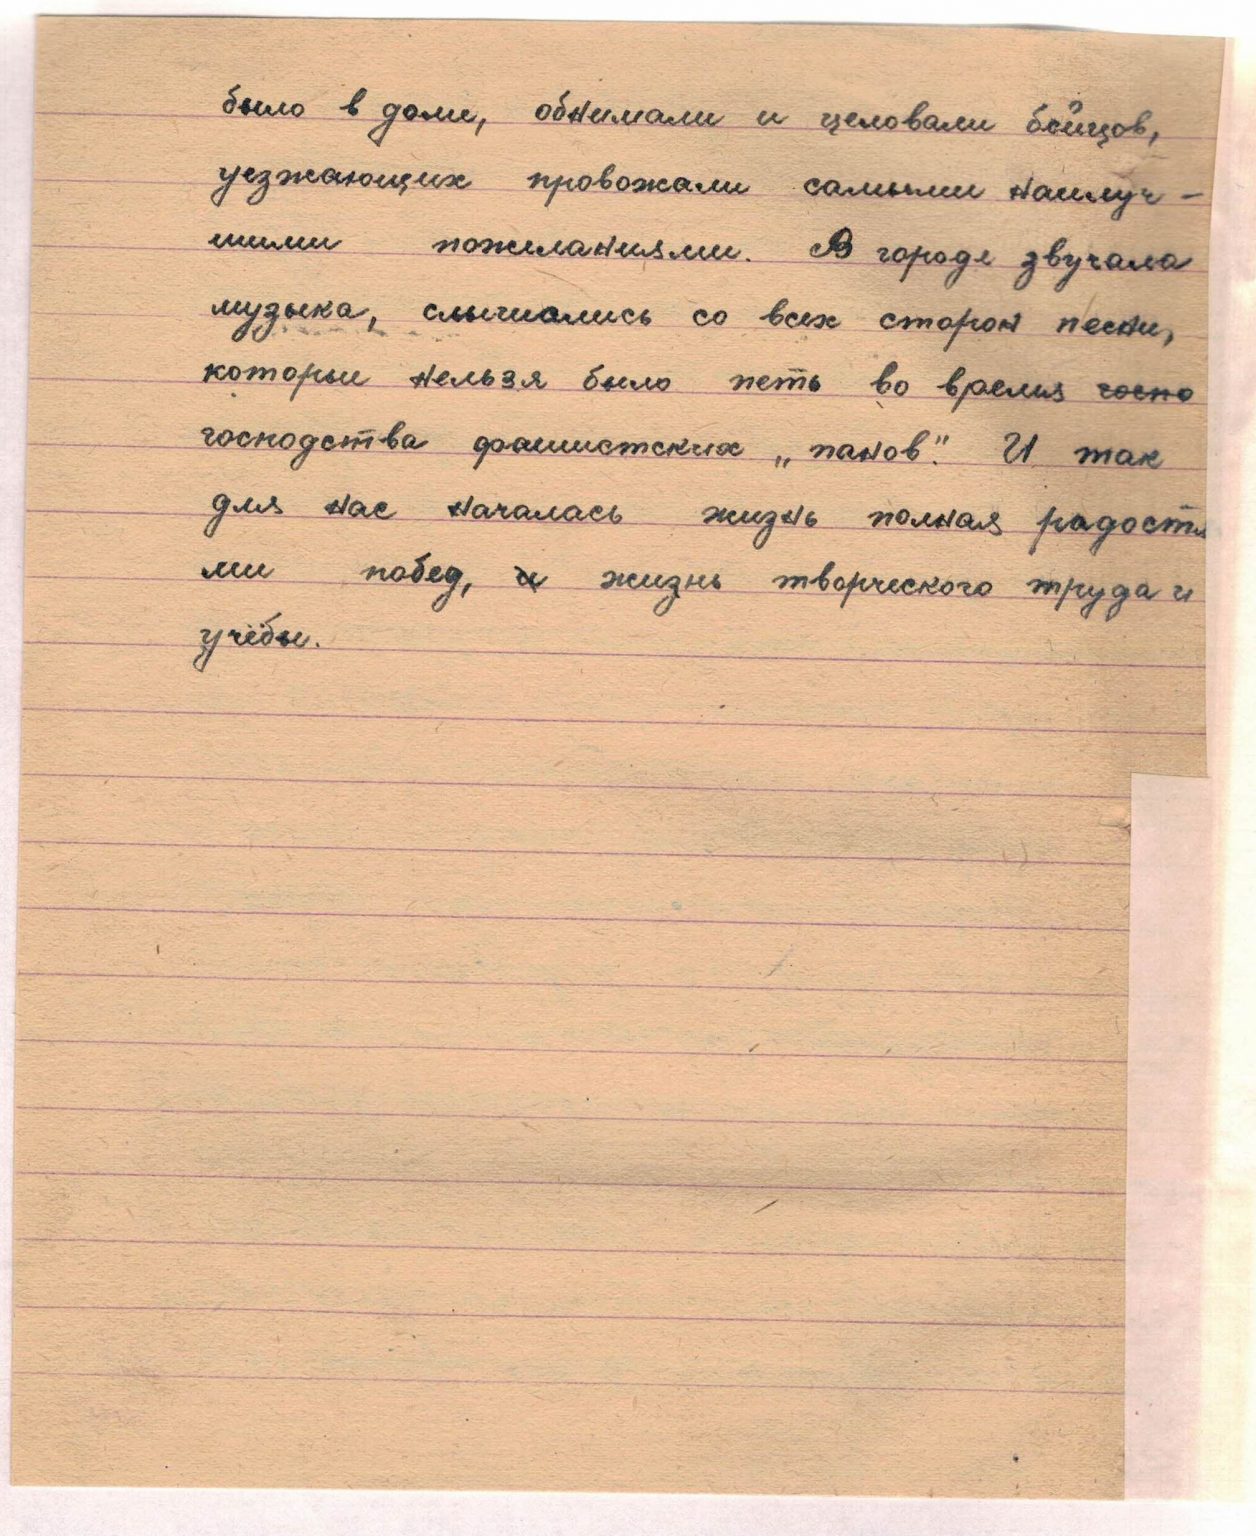 было в доме, обнимали и целовали бойцов,
уезжающих провожали самыми наилуч-
шими пожеланиями. В городе звучала
музыка, слышались со всех сторон песни,
которые нельзя было петь во время госпо
господства фашистских „панов". И так
для нас началась жизнь полная радостя
ми побед, и жизнь творческого труда и
учёбы.